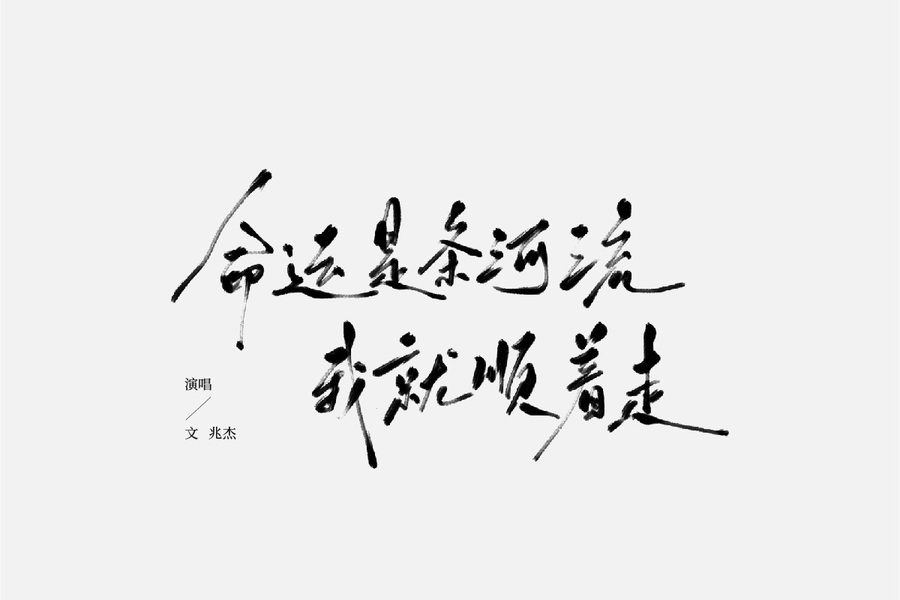 命运是条河流
我就顺着走
演唱
文 兆杰